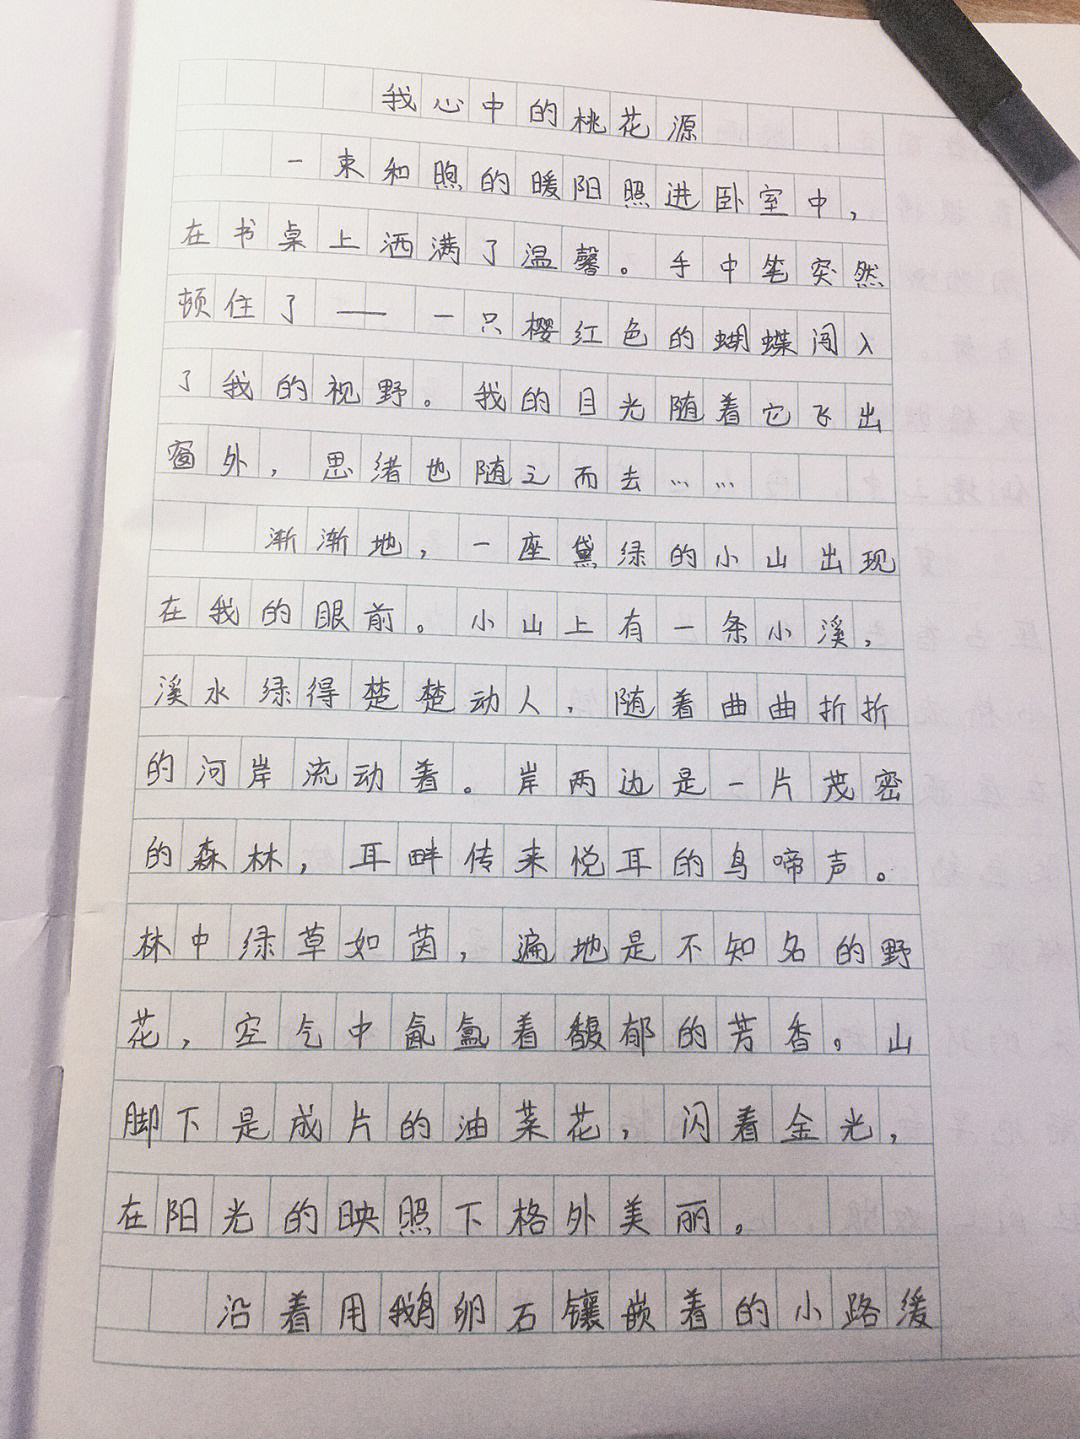 我心中的桃花源
一束和煦的暖阳照进卧室中，
在书桌上洒满了温馨。手中笔突然
顿住了——一只樱红色的蝴蝶闯入
了我的视野。我的目光随着它飞出
窗外，思绪也随之而去……
渐渐地，一座黛绿的小山出现
在我的眼前。小山上有一条小溪，
溪水绿得楚楚动人，随着曲曲折折
的河岸流动着。岸两边是一片茂密
的森林，耳畔传来悦耳的鸟啼声。
林中绿草如茵，遍地是不知名的野
花，空气中氤氲着馥郁的芳香。山
脚下是成片的油菜花，闪着金光，
在阳光的映照下格外美丽。
沿着用鹅卵石镶嵌着的小路缓